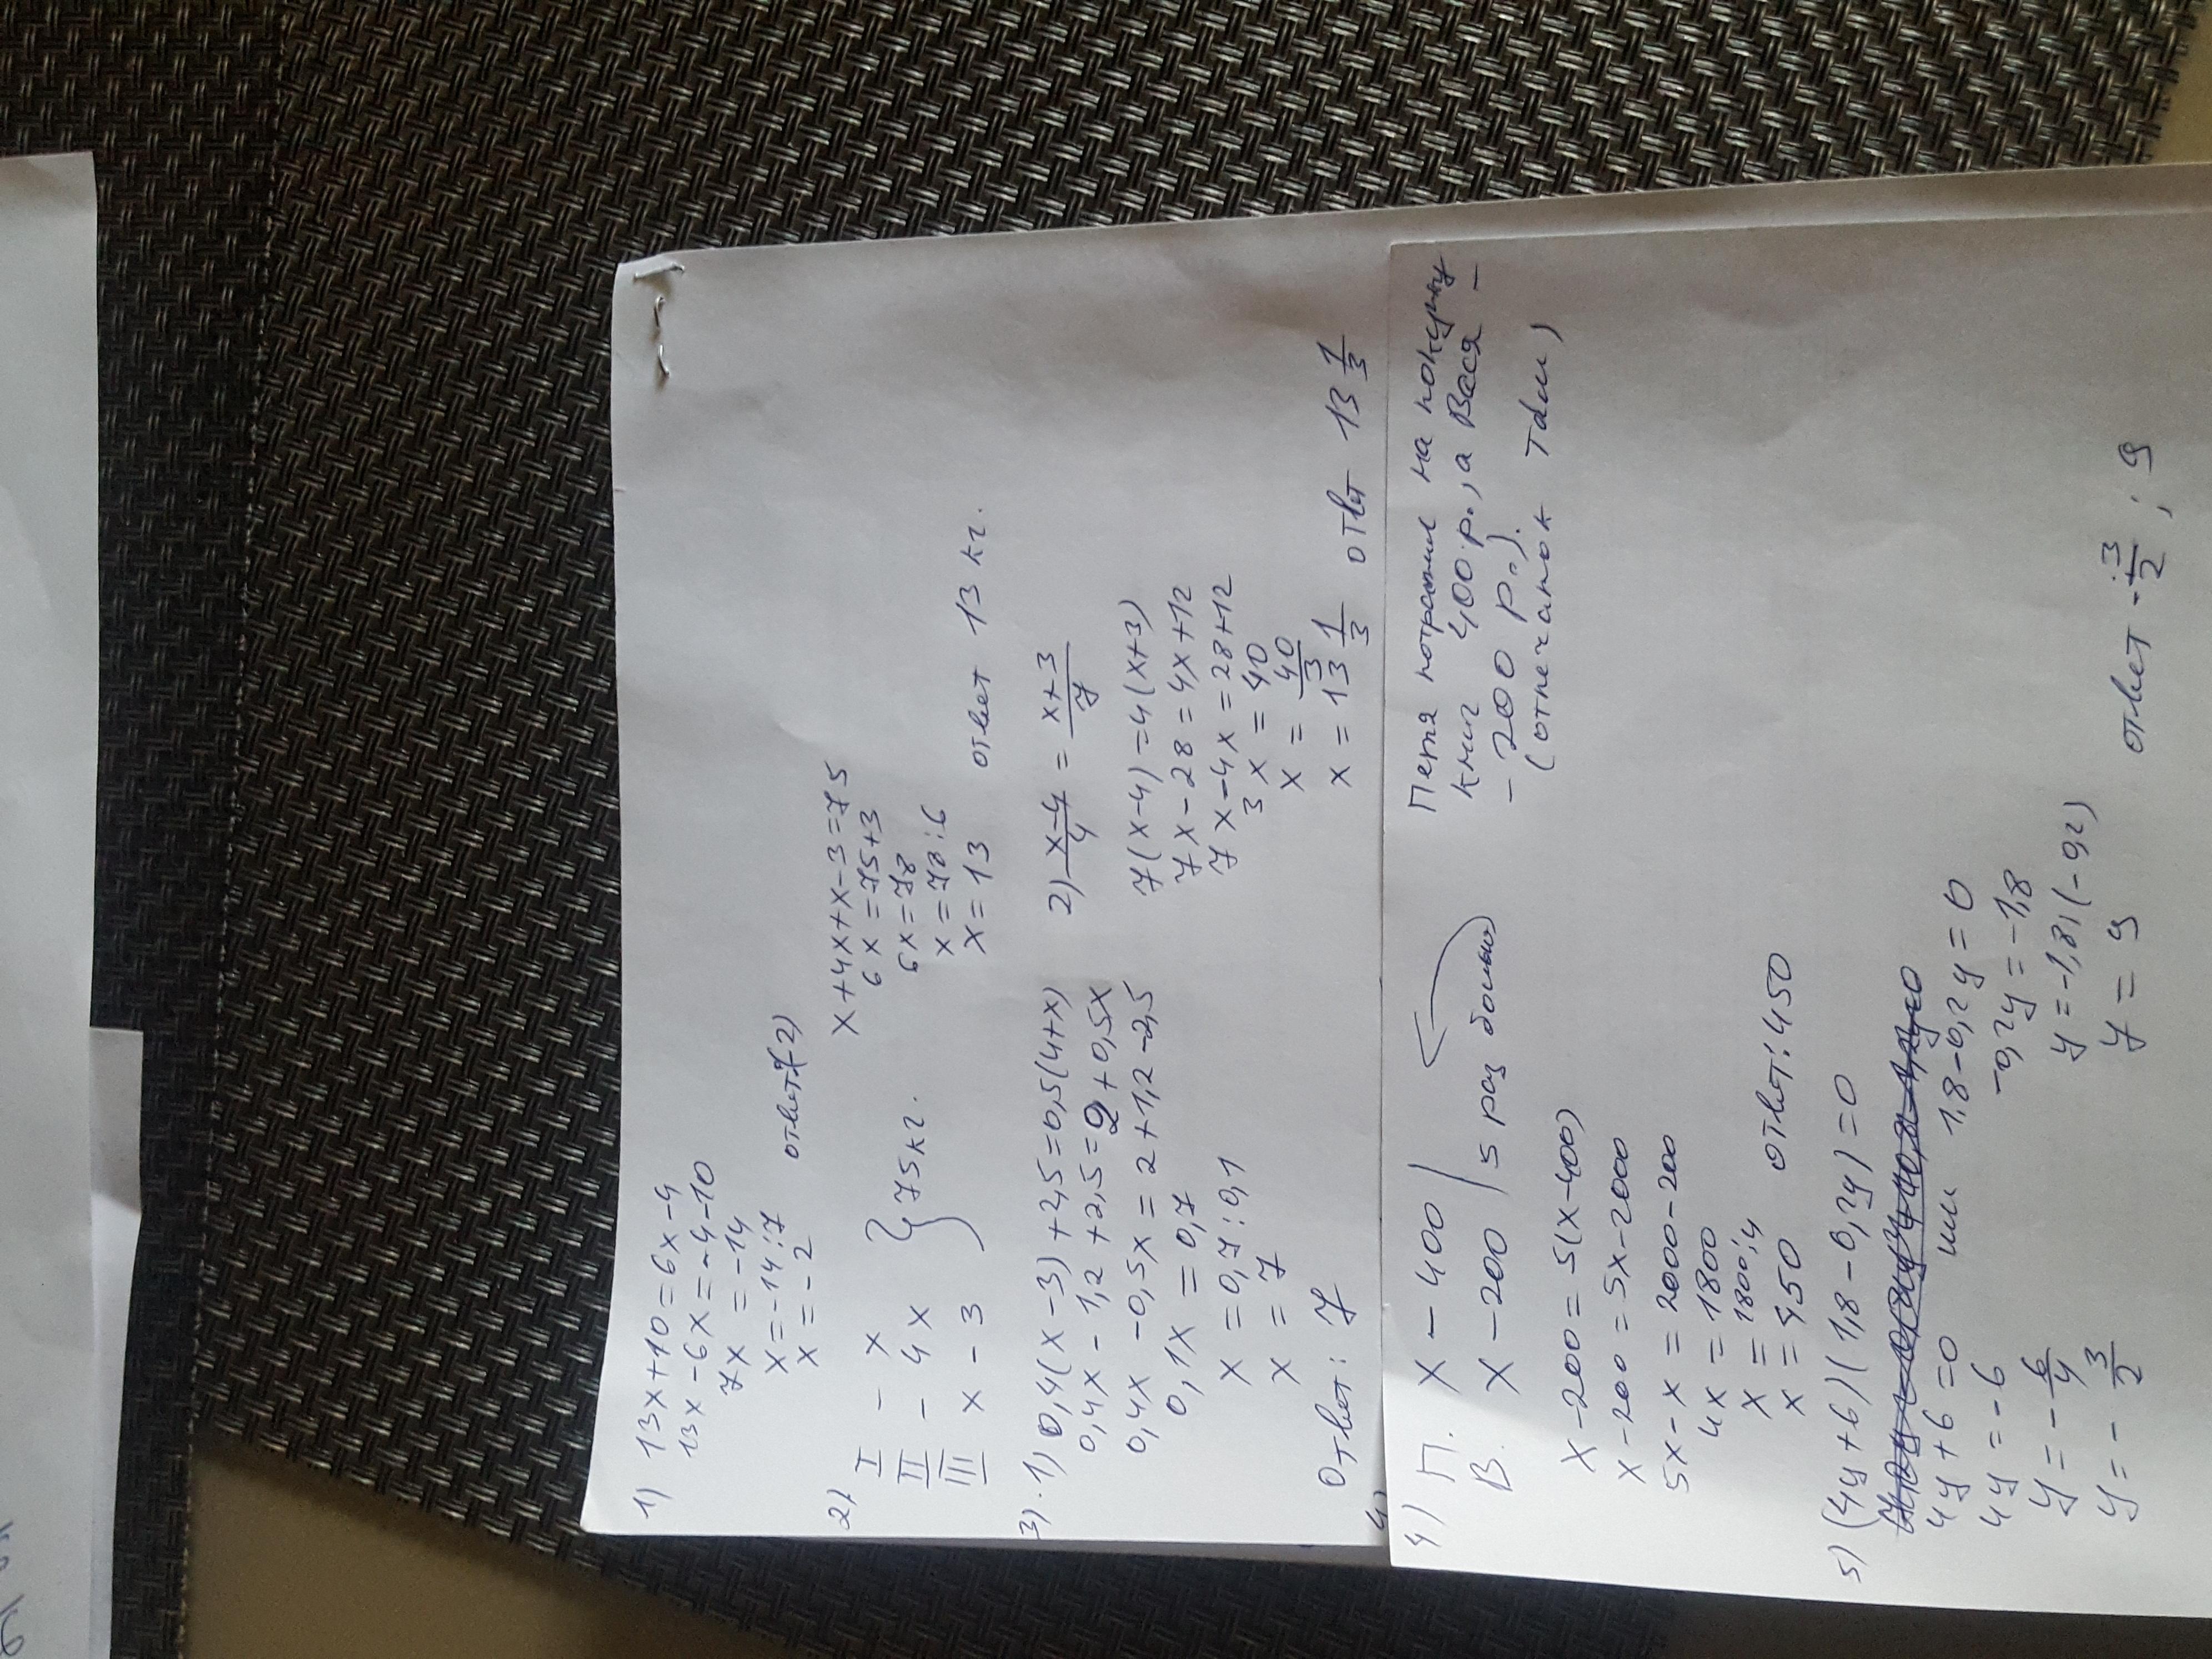 1) 13x+10=6x-4
13x-6x=-4-10
7x=-14
x=-14:7
x=-2 ответ:(-2)
2) I - x
II - 4x
III x-3
} 75кг.
x+4x+x-3=75
6x=75+3
6x=78
x=78:6
x=13 ответ 13 кг.
3).1) 0,4(x-3)+2,5=0,5(4+x)
0,4x-1,2+2,5=2+0,5x
0,4x-0,5x=2+1,2-2,5
0,1x=0,7
x=0,7:0,1
x=7
Ответ: 7
2) x-4/4 = x+3/7
7(x-4)=4(x+3)
7x-28=4x+12
7x-4x=28+12
3x=40
x=40/3
x=13 1/3 ответ 13 1/3
4)
4) П. x-400
В. x-200 | 5 раз больше
x-200=5(x-400)
x-200=5x-2000
5x-x=2000-200
4x=1800
x=1800:4
x=450 ответ:450
Петя потратил на покупку
книг 400р., а Вася -
-200 р.).
(отпечаток там)
5) (4y+6)(1,8-0,2y)=0
4y+6=0 или 1,8-0,2y=0
4y=-6
y=-6/4
y=-3/2
-0,2y=-1,8
y=-1,8:(-0,2)
y=9 ответ -3/2; 9